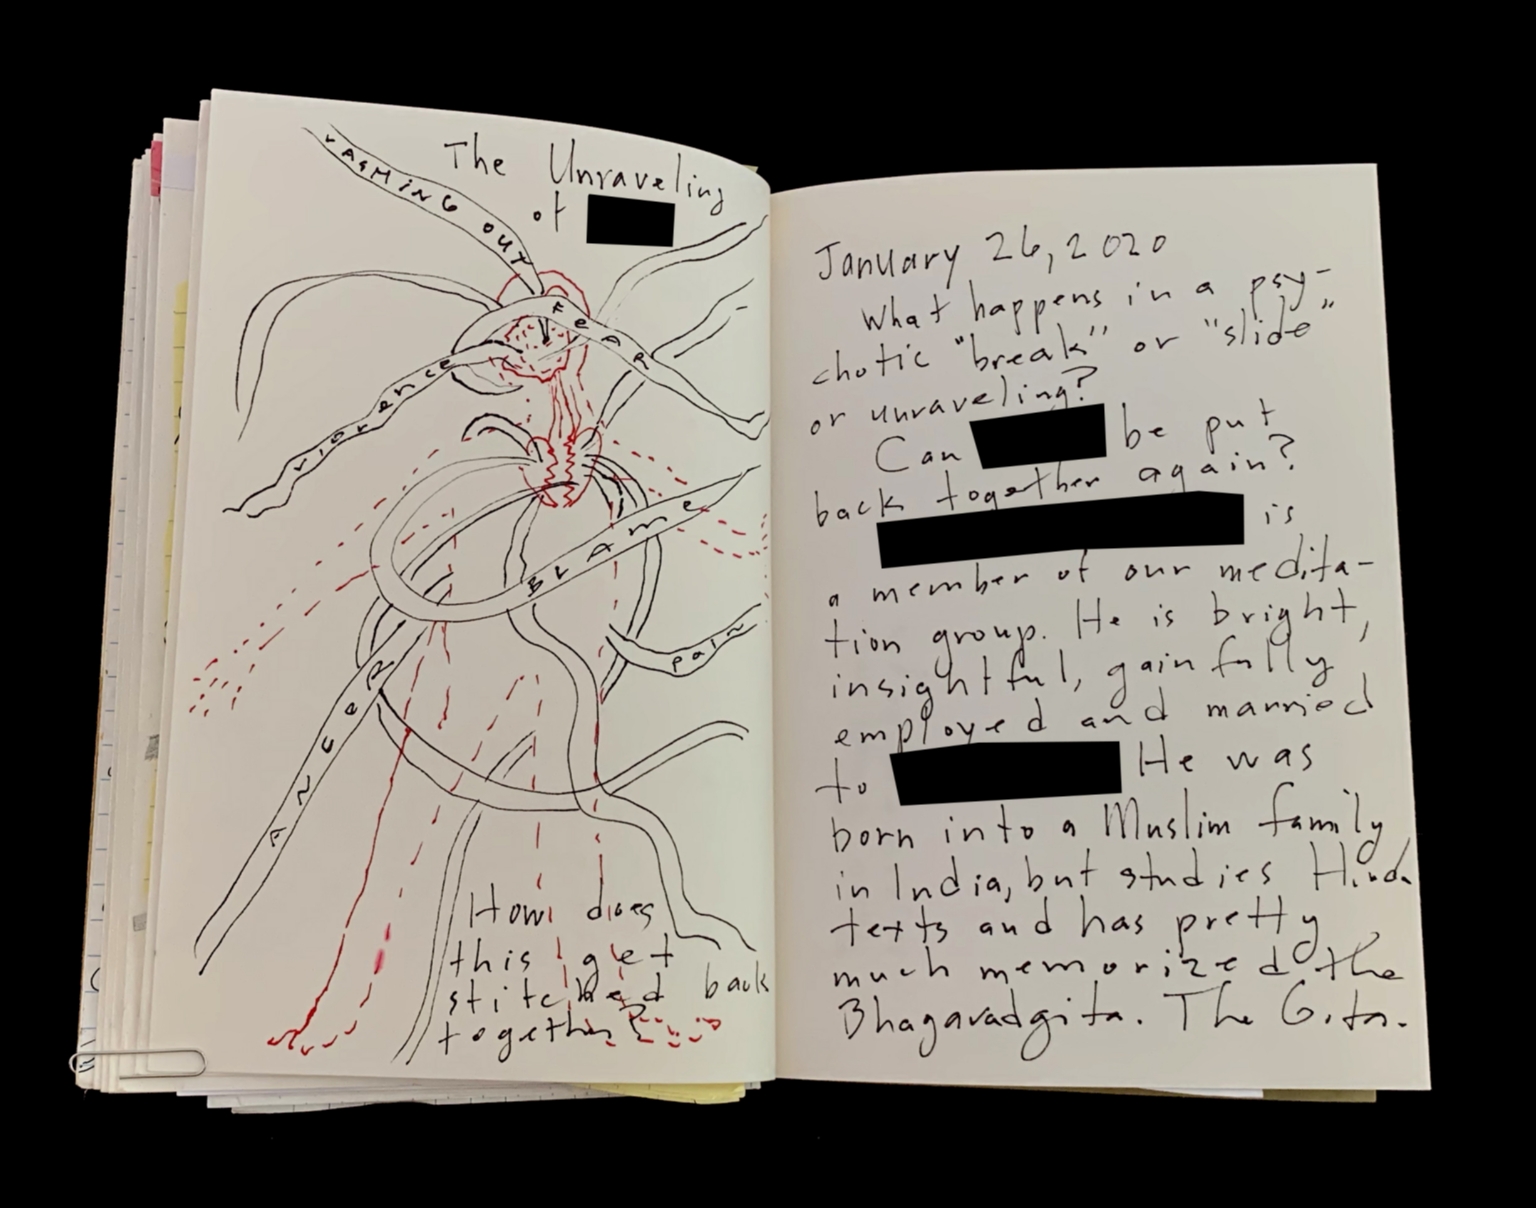 The Unraveling
of
LASHING OUT
FEAR
VIOLENCE
BLAME
PAIN
ANGER
How does
this get
stitched back
together?
January 26, 2020
What happens in a psy-
chotic "break" or "slide"
or unraveling?
Can be put
back together again?
is
a member of our medita-
tion group. He is bright,
insightful, gainfully
employed and married
to He was
born into a Muslim family
in India, but studies Hindu
texts and has pretty
much memorized the
Bhagavadgita. The Gita.